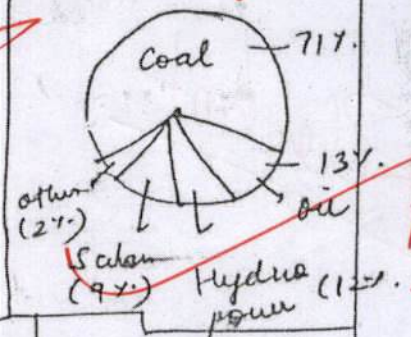 Coal
71%.
13%.
oil
other
(2%.)
Solar
(9%.)
Hydro
power
(12%.